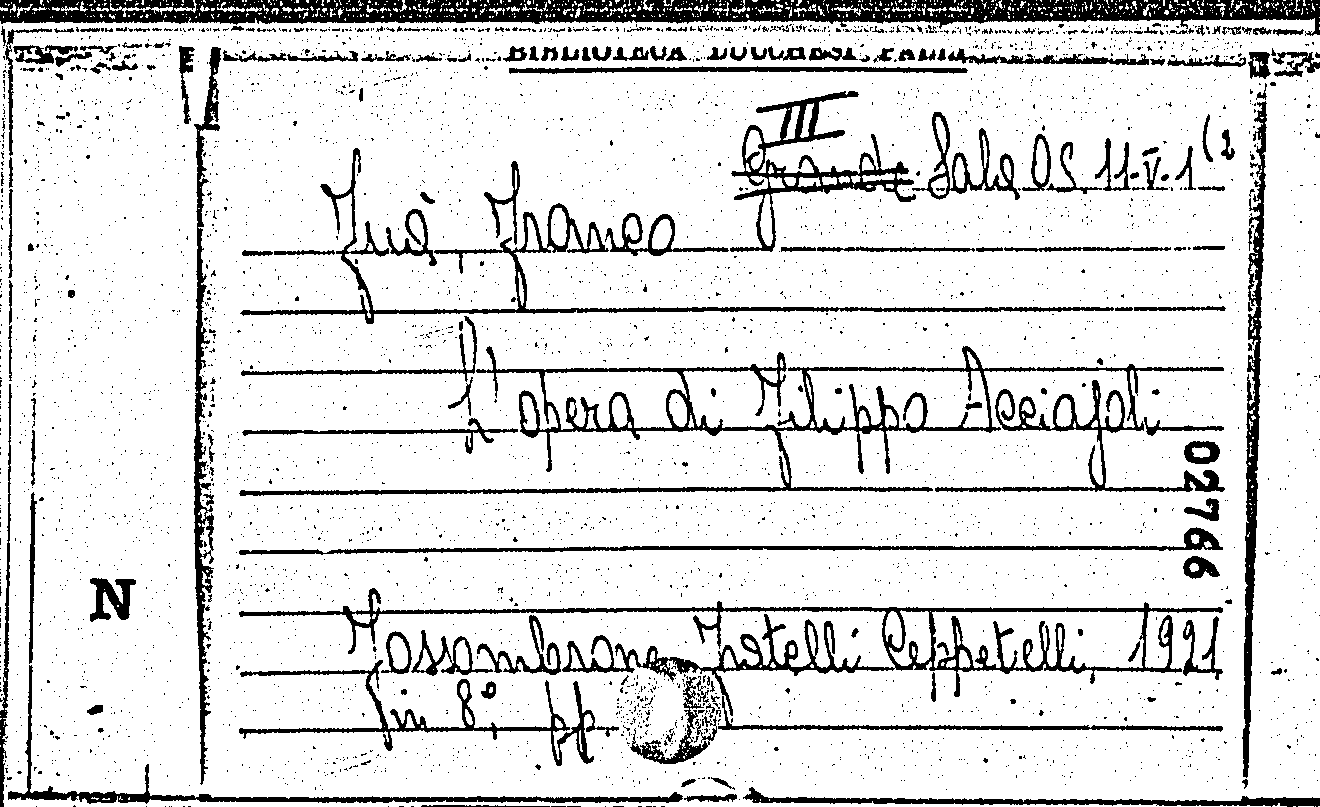 BIBLIOTECA LUCCHESI-PALLI
III
Grande Sala OS. 11-V-1(2
Fuà, Franco
L'opera di Filippo Acciajoli
02766
N
Fossombrone, Fratelli Ceppetelli, 1921
in 8°, pp.